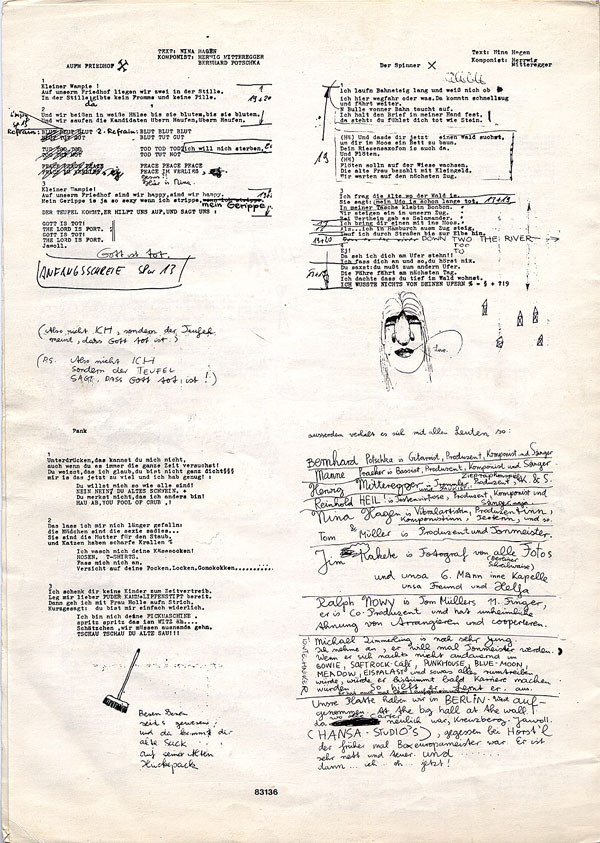 TEXT: NINA HAGEN
AUFM FRIEDHOF
KOMPONIST: HERWIG MITTEREGGER
BERNHARD POTSCHKA
1
Kleiner Vampir !
Auf unsrem Friedhof liegen wir zwei in der Stille.
In der Stille gibts keine Fromms und keine Pille.
da
Und wir beißen in weiße Hälse bis sie bluten, bis sie bluten.
Und wir saufen die Kandidaten übern Haufen, übern Haufen.
Refrain: BLUT BLUT BLUT 2. Refrain: BLUT BLUT BLUT
BLUT TUT GUT BLUT TUT GUT
TOD TOD TOD TOD TOD TOD ich will nich sterben,
TOD TUT NOT
PEACE PEACE PEACE PEACE PEACE PEACE
PEACE IM VERLIES
3
Kleiner Vampir!
Auf unsrem Friedhof sind wir happy, sind wir happy.
Mein Gerippe is ja so sexy wenn ich strippe,
mein Gerippe.
DER TEUFEL KOMMT, ER HILFT UNS AUF, UND SAGT UNS :
GOTT IS TOT!
THE LORD IS FORT.
GOTT IS TOT!
THE LORD IS FORT.
Jawoll.
Gott is tot.
ANFANGSSCHREIE SPUR 13
(Also nicht ICH, sondern der Teufel
meint, dass Gott tot ist.)
(P.S. Also nicht ICH
sondern der TEUFEL
SAGT, DASS GOTT tot, ist!)
Der Spinner
Text: Nina Hagen
Komponist: Herrwig
Mitteregger
1
Ich laufn Bahnsteig lang und weiß nich ob
Ich hier wegfahr oder was. Da kommt schnaufend
und fährt weiter.
N Bulle vonner Bahn taucht auf.
Ich halt den Brief in meiner Hand fest,
Da steht: du fühlst dich tot wie Stein.
(HR) Und dasde dir jetzt einen Wald suchst,
um dir im Moos ein Bett zu baun.
Dein Riesensaxofon is auch da.
Und Flöten.
(HR)
Flöten solln auf der Wiese wachsen,
Die alte Frau bezahlt mit Kleingeld.
Wir warten auf den nächsten Zug.
19
2
Ich frag die Alte wo der Wald is.
Sie sagt: mein Udo is schon lange tot.
In meiner Tasche klebtn Bonbon.
Wir steigen ein im unsern Zug.
Bei Bertheim gab es Salamander.
Ich bring dir einen mit ins Moos!
Als...ich im Hamburch ausm Zug steig,
Lauf ich durch Straßen bis zur Elbe hin.
DOWN TWO THE RIVER
TOO
TO
Ej!
Da seh ich dich am Ufer stehn!!
Ich fass dich an und so, du hörst nix.
Du saxst: du mußt zum andern Ufer.
Die Fähre fährt am nächsten Tag.
Ich dachte dass du tief im Wald wohnst,
ICH WUSSTE NICHTS VON DEINEN UFERN
Pank
1
Unterdrücken, das kannst du mich nicht,
auch wenn du es immer die ganze Zeit versuchst!
Du weinst, das ich glaub, du bist nicht ganz dicht§§§
mir is das jetzt zu viel und ich hab genug! :
Du willst mich so wie alle sind!
NEIN NEIN! DU ALTES SCHWEIN. +
Du merkst nicht, das ich anders bin!
MAU AB, YOU FOOL OF CRUB ,!
2
Das lass ich mir nich länger gefalln:
die Mädchen sind die sexte sadies...
Sie sind die Mutter für den Staub,
und Katzen haben scharfe Kralln !
Ich wasch nich deine Käsesocken!
HOSEN, T-SHIRTS.
Pass mich nich an,
Verzicht auf deine Pocken, Locken, Gonokokken............
3
Ich schenk dir keine Kinder zum Zeitvertreib.
Leg mir lieber PUDER KAMM+LIPPENSTIFT bereit.
Dann geh ich mit Frau Holle aufn Strich.
Kurzgesagt: du bist mir einfach widerlich.
Ich bin nich deine FICKMASCHIEHE –
spritz spritz das isn WITZ ÄH...
Schätzchen, wir müssen ausnanda gehn.
TSCHAU TSCHAU DU ALTE SAU!!!
Besen Besen
seits gewesen:
und da kommt der
alte Sack
auf seiner Alten
Huckepack
ausserdem verhält es sich mit allen Leuten so:
Bernhard Potschka is Gitarist, Produzent, Komponist und Sänger
Manne Praeker is Bassist, Produzent, Komponist und Sänger
Herwig Mitteregger is Trommler, Produzent, K. & S.
Reinhold HEIL is Tastenvirtuose, Produzent, Komponist und
Sänger
Nina Hagen is Vokalartistin, Produzentinn,
Komponistinn, Texterin, und so.
Tom Müller is Produzent und Tonmeister.
Jim Rakete is Fotograf von alle Fotos
(Berliner
Schreibweise)
und unsa 6. Mann inne Kapelle
unsa Freund und Helfa
Ralph NOWY is Tom Müllers 11. Finger,
er is Co-Produzent und hat unheimliche
Ahnung von Arrangieren und cooperieren.
Michael Zimmerling is noch sehr jung.
Ich nehme an, er will mal Tonmeister werden.
Wenn er sich nachts nicht andauernd in
BOWIE, SAFTROCK-CAFÉ, PUNKHOUSE, BLUE-MOON,
MEADOW, EISPALAST und sowas alles rumtreiben
würde, würde er bestimmt bald Karriere machen
würden. So hilft er. Lernt er. aus.
Unsre Platte haben wir in BERLIN-West auf-
genommen. At the big hall at the wall!
da neulich war, Kreuzberg. Jawoll.
(HANSA-STUDIO'S), gegessen bei Horst'l
der früher mal Boxeuropameister war. Er ist
sehr nett und teuer. und
dann... ich eh jetzt!
83136